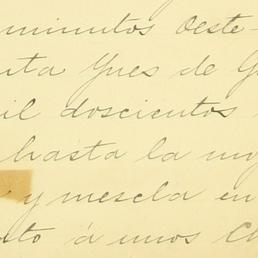 minutos Oeste
Ynes de
doscientos
hasta la
y mescla en
á unos